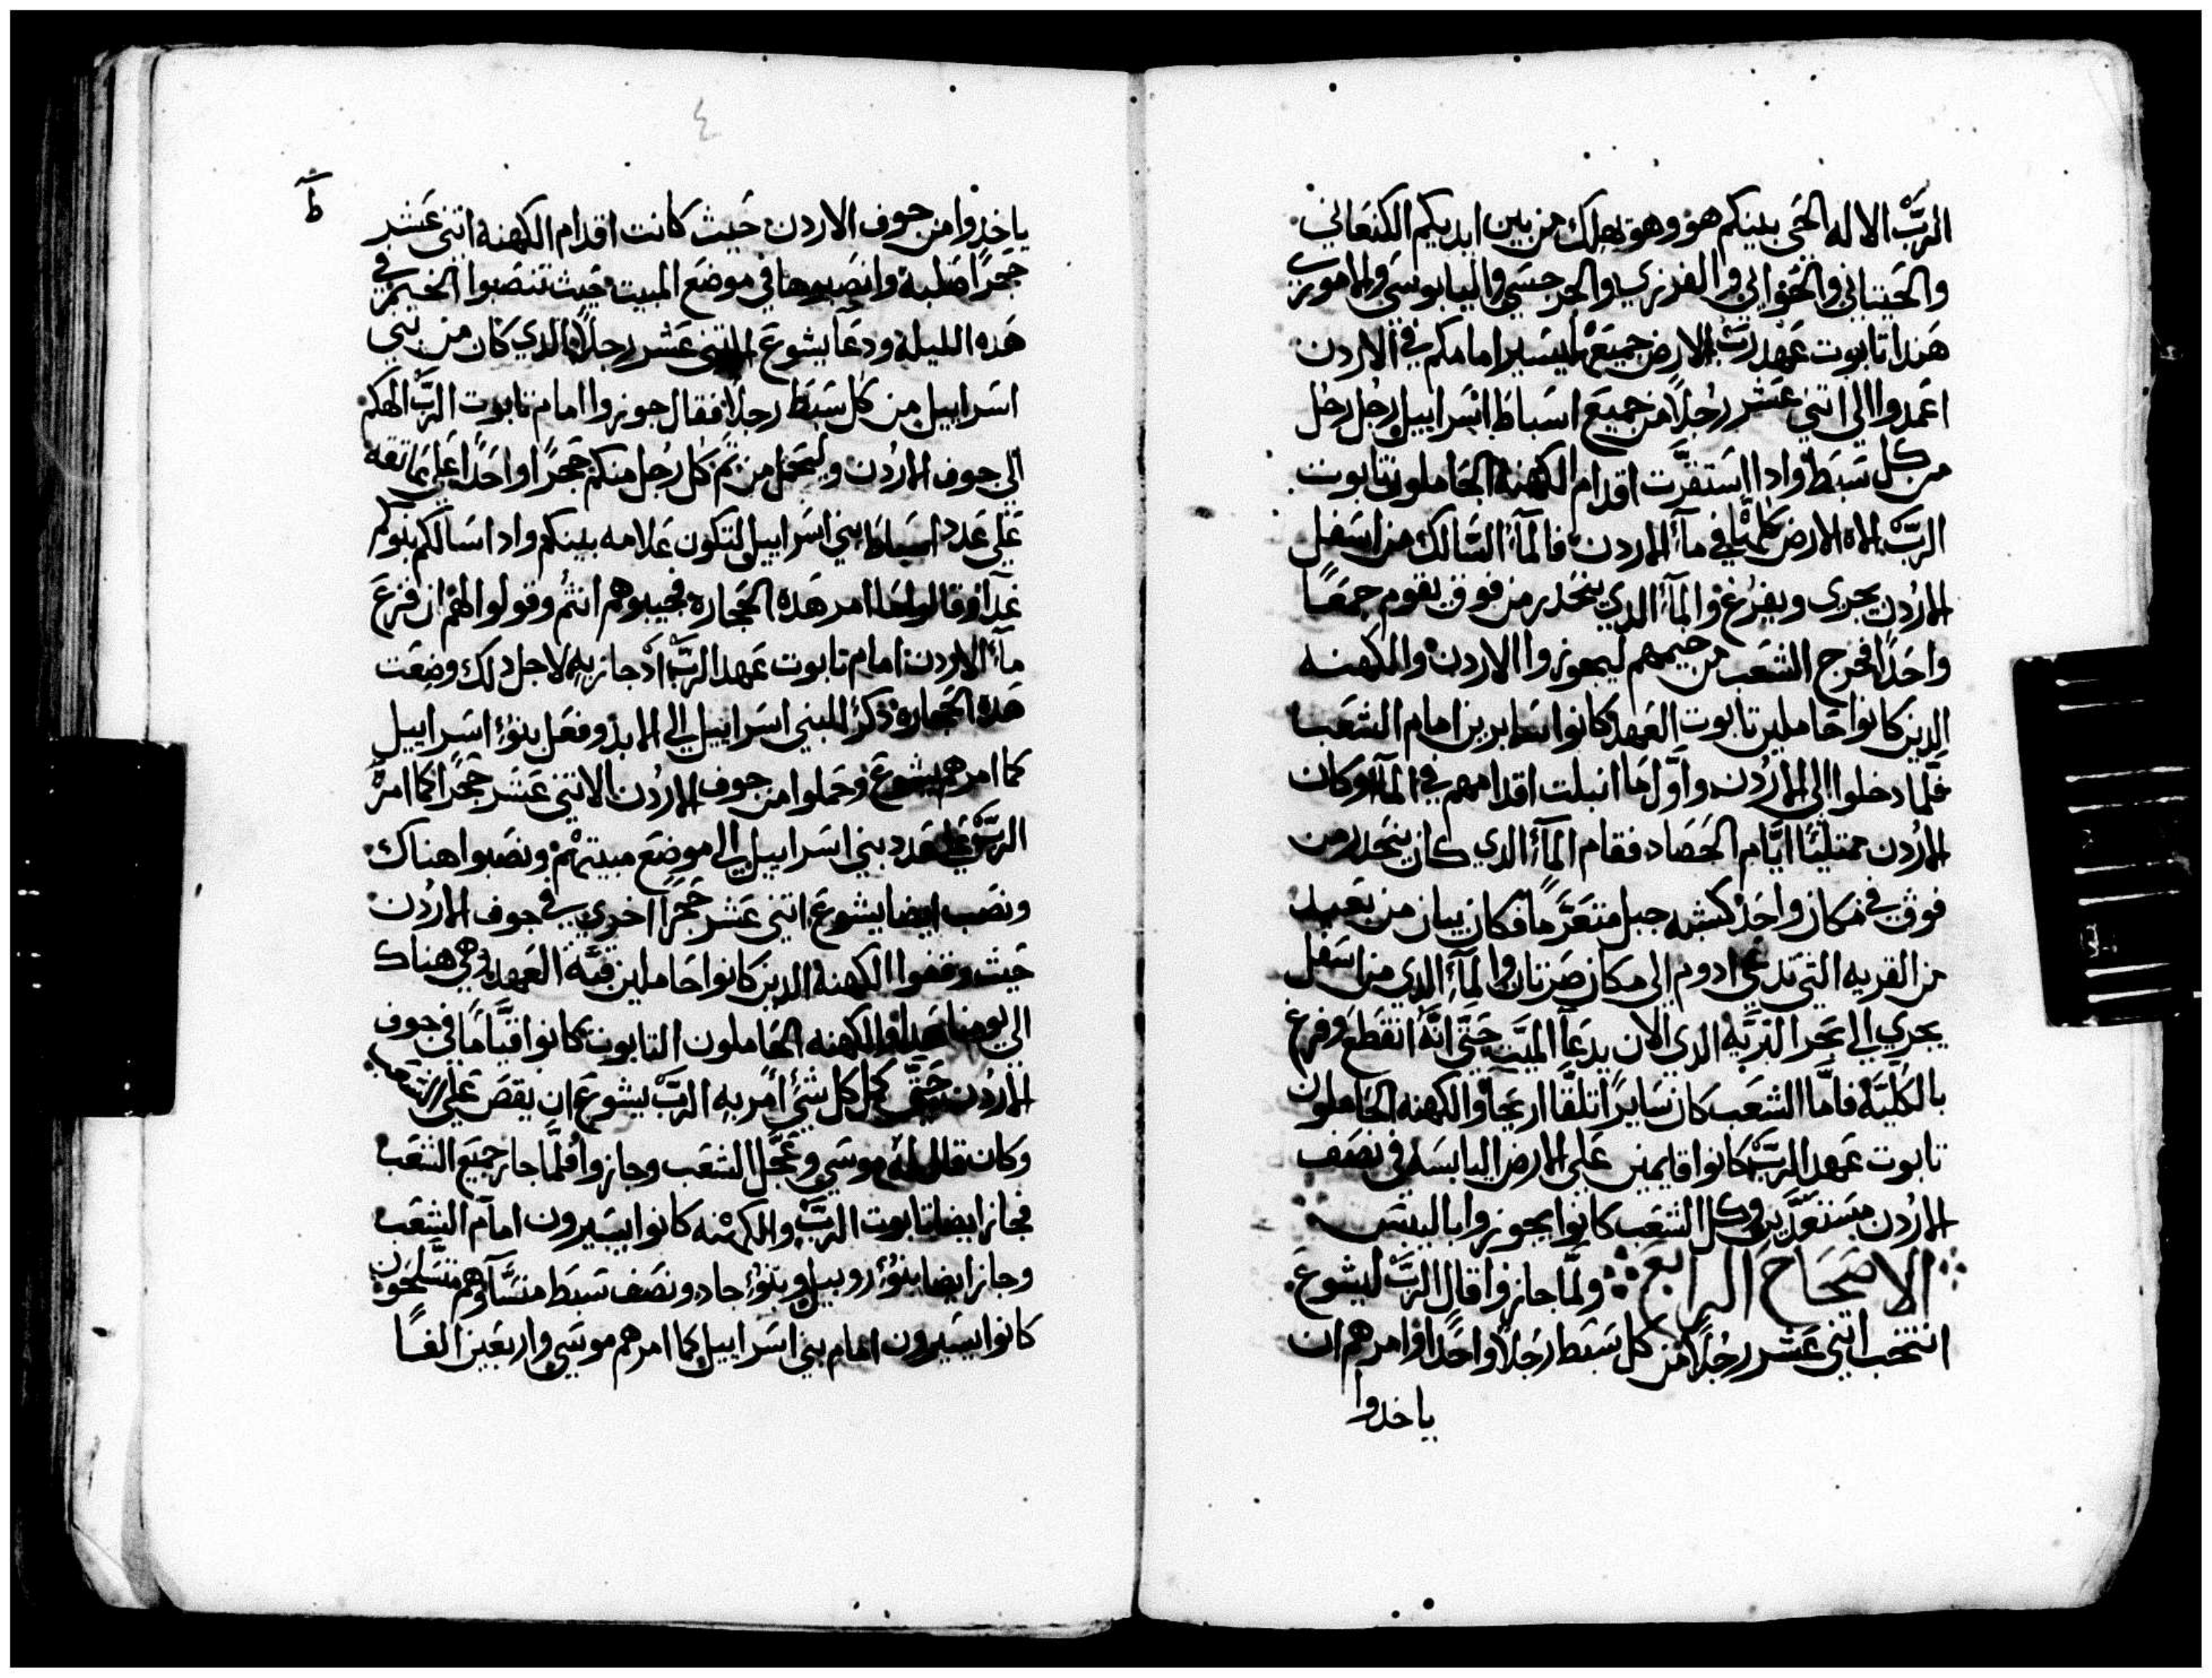 الرَّبّ الاله الحَى بينكم هو وهو يهلك من بين ايديكم الكنعَاني
والحَيتاني والحَواني والفرزي والجرجسَي واليابوسَي والاموري
هَندا تابوت عَهد ربّ الارض جميعَها يسَير امامكم في الاردن
اعَمدوا الى اتني عَشر رجُلاً من جميعَ اسَباط اسَراييل رجُل رجُل
من كل سَبط وادا استقرَّت اقدام الكهنه الحَاملون تابوت
الربّ الاه الارض كلها في مآء الاردن فالمآء السَّالك من اسَفل
الاردُن يجرى ويفرُغ والمآء الدي ينحَدر من فوق يقوم جمعَاً
واحَداً فخرج الشعَب من خيمهم ليجوزوا الاردن والكهنه
الدين كانوا حَاملين تابوت العَهد كانوا سَايرين امام الشعَب
فلَّما دخلوا الى الاردُن واوَّل ما انبلت اقدامهم في المآء وكان
الاردُن ممتلئا ايَّام الحَصَاد فقام المآء الدي كان ينحَدر من
فوق في مكان واحَد كشبه جبل متعَرَّماً فكان يبان من بعَيد
من القريه التي تدعَى ادوم الى مكان صَرتان والمآء الدي من اسَفل
يجري الى بَحر البَريَّه الدي الان يدعَا الميَّت حَتَّى انَّه انقطعَ وفرغ
بالكليَّه فامَّا الشعَب كان سَايراً تلقا اريحَا والكهنه الحَاملون
تابوت عَهد الربّ كانوا قايمين عَلى الارض اليابسَه في نصَف
الاردُن مسَتعَدّين وكل الشعَب كانوا يجوزوا باليبسَ
الاصَحَاح الرابعَ ولمَّا جازوا قال الربّ ليشوعَ
انتخب اتني عَشر رجُلاً من كل سَبط رجَلاً واحَداً وامرهم ان
ياخدوا
٤
ط
ياخدوا من جوف الاردن حَيث كانت اقدام الكهنه اتني عَشر
حَجراً صَلبه وانصَبوها في موضَعَ المبيت حَيث تنصَبوا الخيم في
هَده الليله ودعَا يشوعَ الاتني عَشر رجلاً الدي كان من بني
اسَراييل من كل سَبط رجلاً فقال جوزوا امام تابوت الربّ الهكم
الى جوف الاردُن وليحَمل من تَم كل رجُل منكم حَجراً واحَداً عَلى عَاتقه
عَلى عَدد اسَباط بني اسَراييل لتكون عَلامه بينكم وادا سَالكم بنوكم
غداً وقالوا ما امر هَده الحَجاره فجيبوهم انتُم وقولوا لهم ان فرغَ
مآء الاردن امام تابوت عَهد الربّ ادْ جاز بهِ لاجل دلك وضعَت
هَده الحَجاره دكراً لبني اسَراييل الى الابد وفعَل بنوُا اسَراييل
كما امرهم يشوعَ وحَملوا من جوف الاردُن الاتني عَشر حَجراً كما امرَ
الربّ عَلى عَدد بني اسَراييل الى موضِعَ مبيتهم ونصَبوا هناك
ونصَب ايضا يشوعَ اتني عَشر حَجراً اخري في جوف الاردُن
حَيث وقفوا الكهنه الدين كانوا حَاملين قبَّة العَهد وهى هناك
الى يومنا هَدا والكهنه الحَاملون التابوت كانوا قيَّاماً في جوف
الاردُن حَتَّى كمل كل شي امَر بهِ الربّ يشوعَ ان يقصَ عَلى الشعَب
وكان قال لهُ موسَي وعَجَّل الشعَب وجازوا فلَّما جاز جميعَ الشعَب
فجاز ايضا تابوت الربّ والكهنه كانوا يسَيرون امام الشعَب
وجاز ايضا بنوُا روبيل وبنوُا جاد ونصَف سَبط منسَّا وهم متسَلحَون
كانوا يسَيرون امام بني اسَراييل كما امرهم موسَي واربعَين الفاً